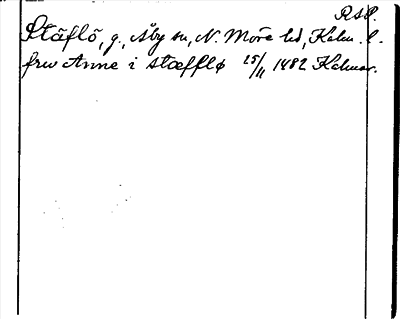 RAP.
Stäflö, g., Åby sn, N. Möre hd, Kalm. l.
fru Anne i stæfflø 25/11 1482 Kalmar.